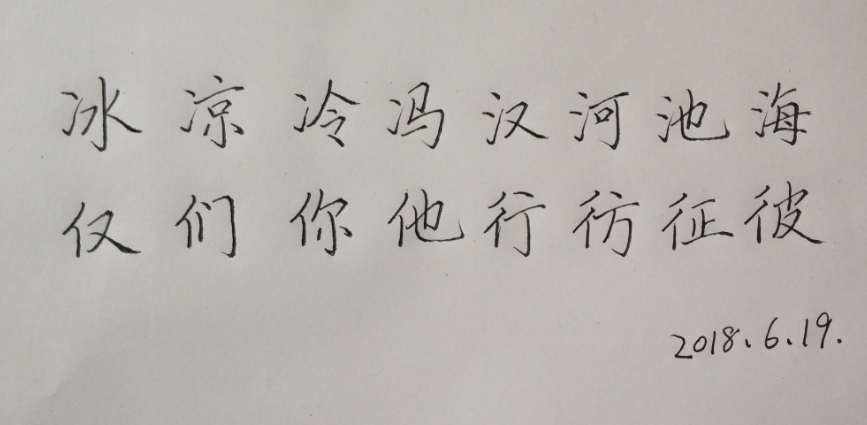 冰凉冷冯汉河池海
仅们你他行彷征彼
2018.6.19.